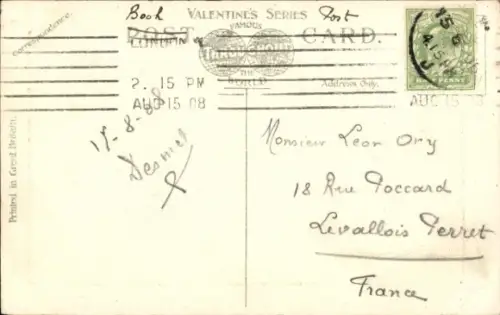 Book Post
VALENTINE'S SERIES
FAMOUS
POST CARD.
THROUGHOUT
THE
WORLD
Correspondence.
Address Only.
LONDON
2. 15 PM
AUG 15 08
AUG 15 08
15-8-08
Printed in Great Britain.
Monsieur Leon Ory
18 Rue Poccard
Levallois Perret
France